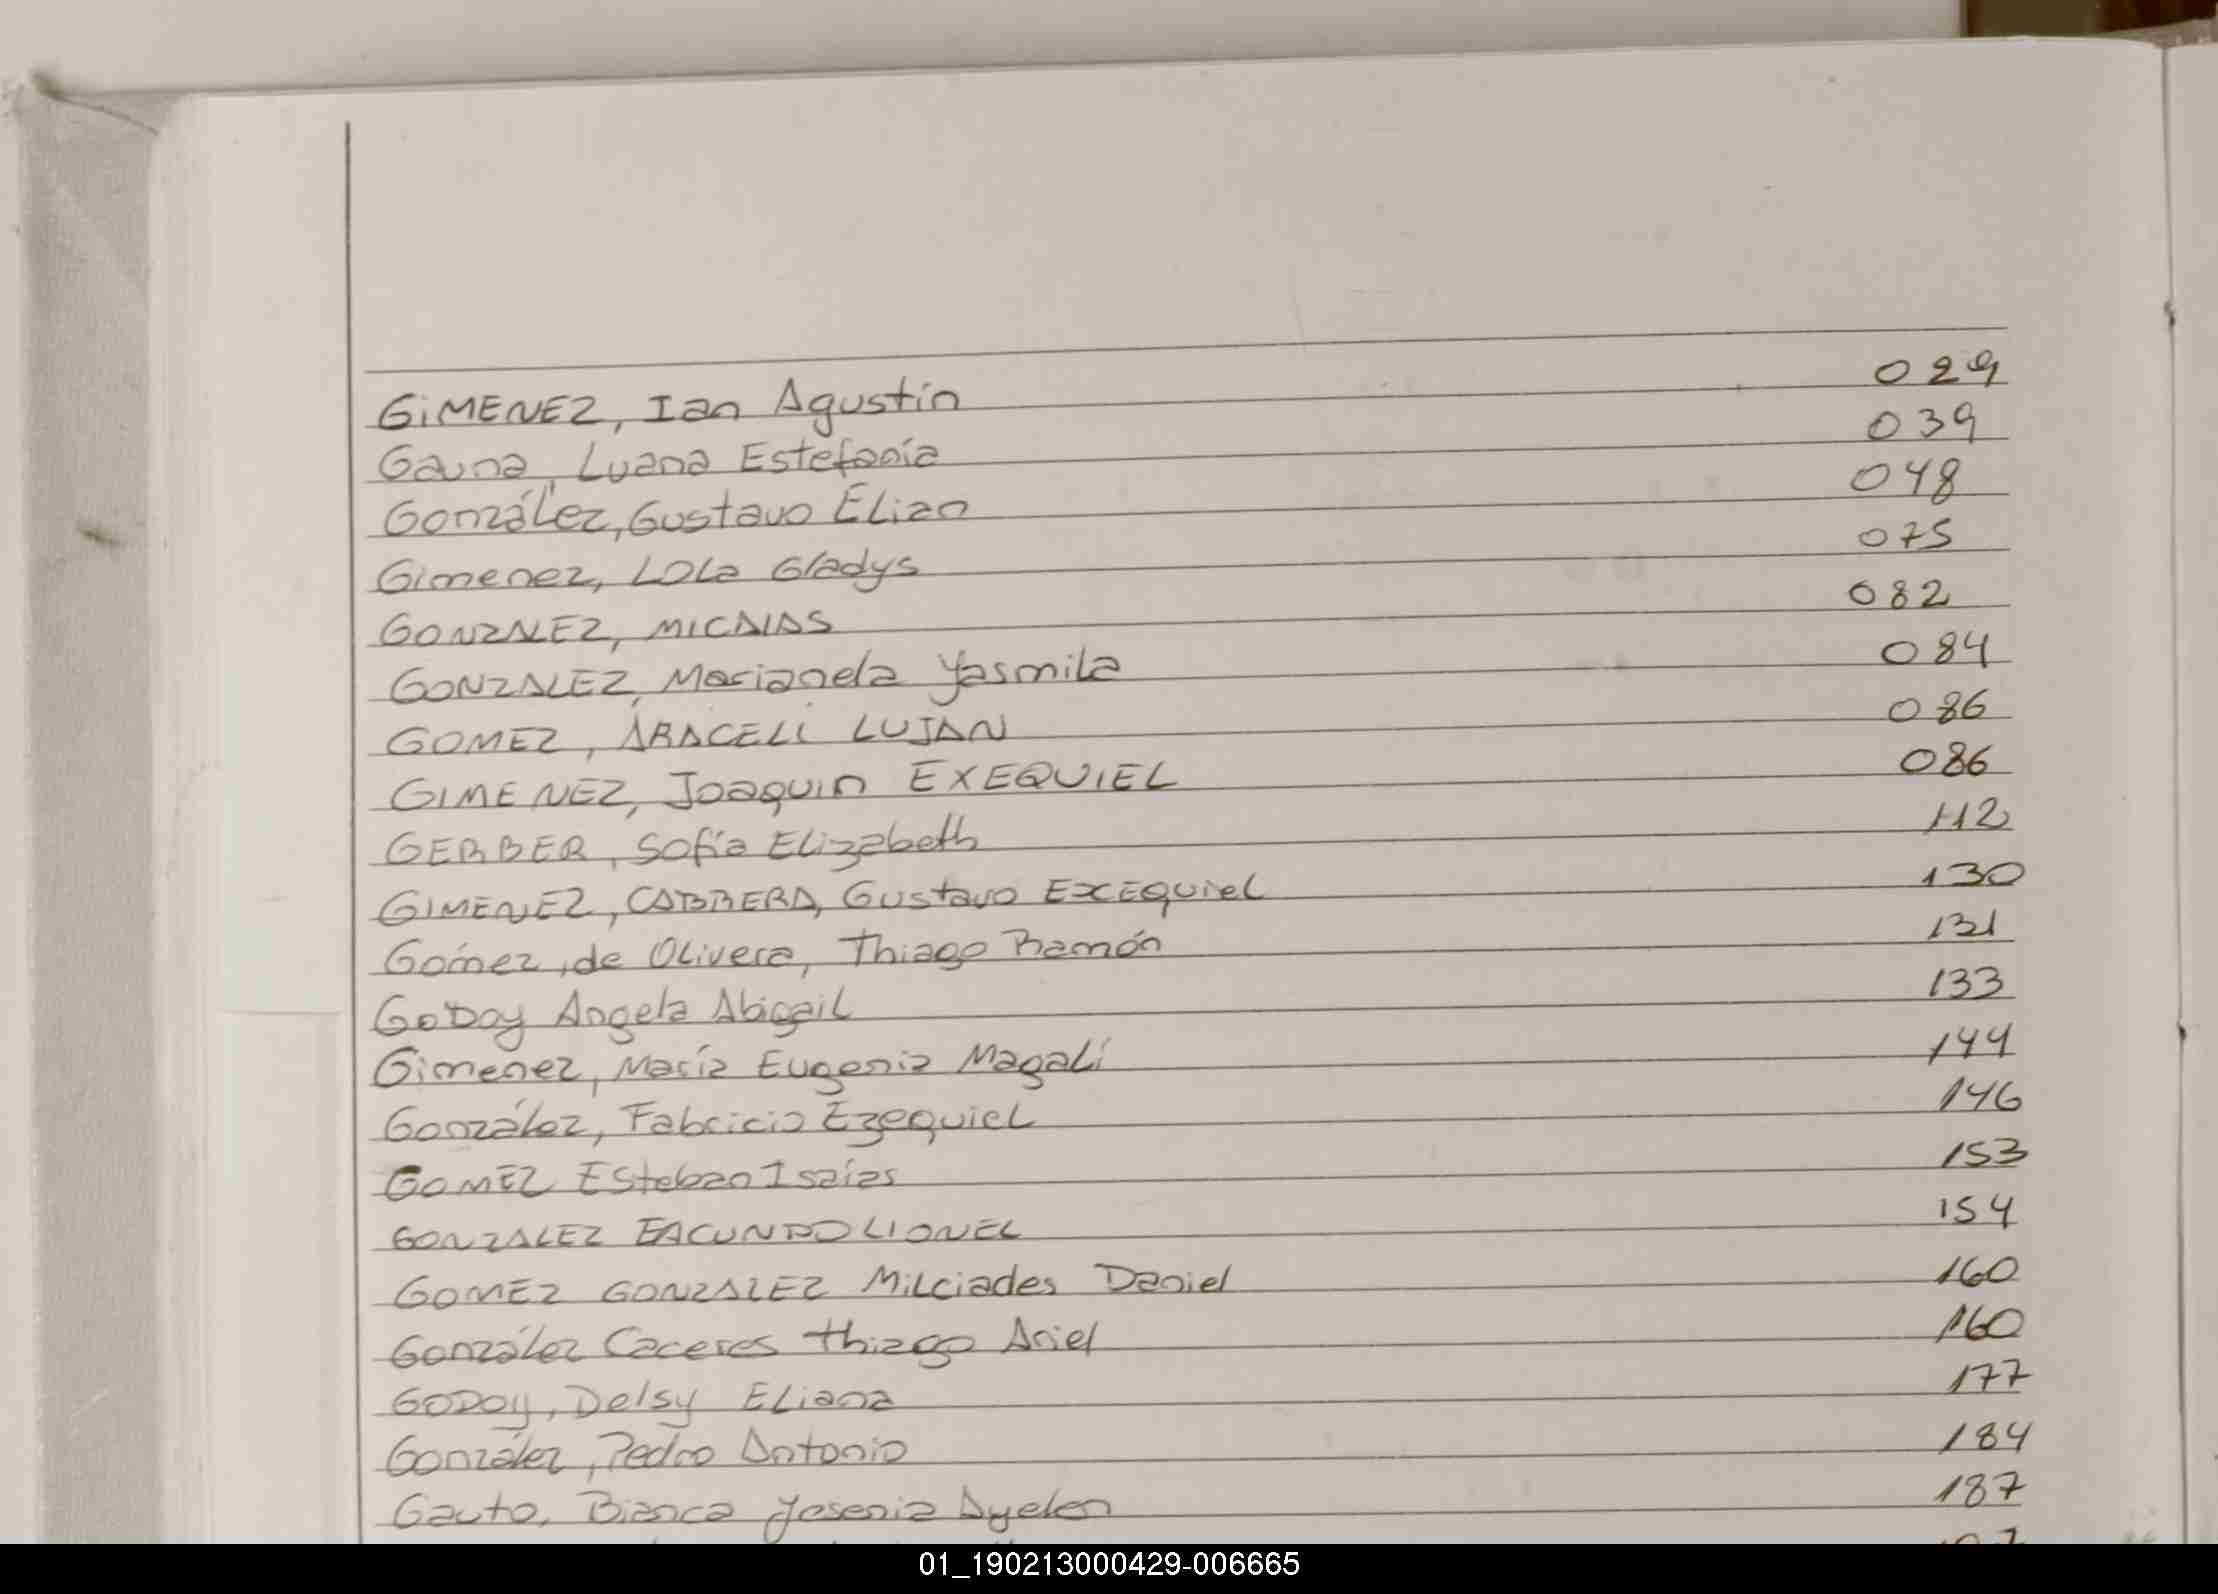 GIMENEZ, Ian Agustín 029
Gauna, Luana Estefanía 039
González, Gustavo Elian 048
Gimenez, Lola Gladys 075
GONZALEZ, MICAIAS 082
GONZALEZ, Marianela Yasmila 084
GOMEZ, ARACELI LUJAN 086
GIMENEZ, Joaquin EXEQUIEL 086
GERBER, Sofía Elizabeth 112
GIMENEZ, CABRERA, Gustavo EXEQUIEL 130
Gómez, de Olivera, Thiago Ramón 131
GODOY Angela Abigail 133
Gimenez, María Eugenia Magalí 144
González, Fabricio Ezequiel 146
GOMEZ Esteban Isaías 153
GONZALEZ FACUNDO LIONEL 154
GOMEZ GONZALEZ Milciades Daniel 160
González Caceres Thiago Ariel 160
GODOY, Delsy Eliana 177
González, Pedro Antonio 184
Gauto, Bianca Yesenia Ayelen 187
01_190213000429-006665